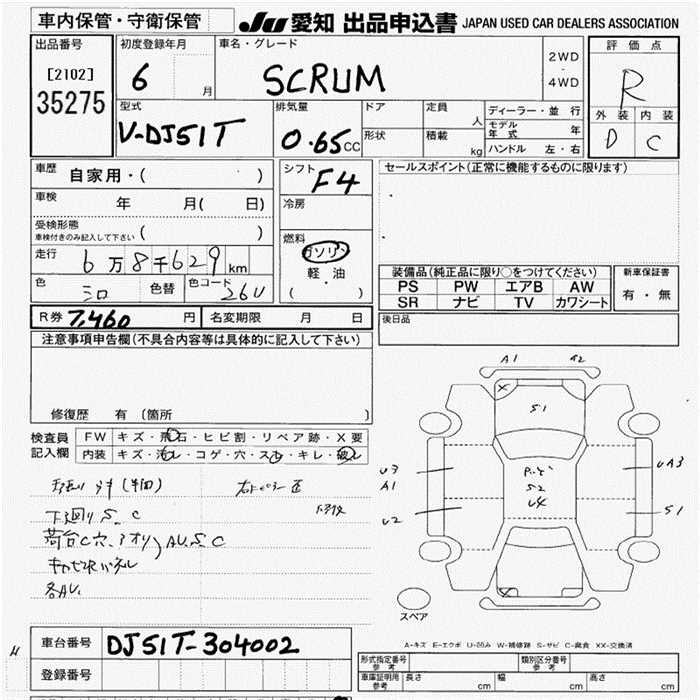 車内保管・守衛保管
JU 愛知 出品申込書 JAPAN USED CAR DEALERS ASSOCIATION
出品番号
[2102]
35275
初度登録年月
6 月
車名・グレード
SCRUM
2WD
・
4WD
評価点
R
外装 内装
D C
型式
V-DJ51T
排気量
0.65CC
ドア
形状
定員 人
積載 kg
ディーラー・並行
モデル年式 年
ハンドル 左・右
車歴 自家用・( )
車検 年 月( 日)
受検形態
車検付きのみ記入して下さい ( )
走行 6万8千629km
色 シロ 色替 色コード 26U
シフト F4
冷房
燃料
ガソリン
軽・油
( )
セールスポイント(正常に機能するものに限ります)
装備品(純正品に限り○をつけてください)
PS PW エアB AW
SR ナビ TV カワシート
新車保証書
有・無
R券 7,460円 名変期限 月 日
後日品
注意事項申告欄(不具合内容等は具体的に記入して下さい)
修復歴 有 (箇所 )
検査員記入欄
FW キズ・飛石・ヒビ割・リペア跡・X要
内装 キズ・汚れ・コゲ・穴・スレ・キレ・破レ
下廻り S、C
荷台C穴、アオリ AU、S、C
各AU、
A1
S1
S2
U4
U3
A1
U2
UA3
S1
スペア
A-キズ E-エクボ U-凹み W-補修跡 S-サビ C-腐食 XX-交換済
車台番号 DJ51T-304002
登録番号
形式指定番号 参考
類別区分番号 参考
車庫証明用 参考 長さ cm 幅 cm 高さ cm